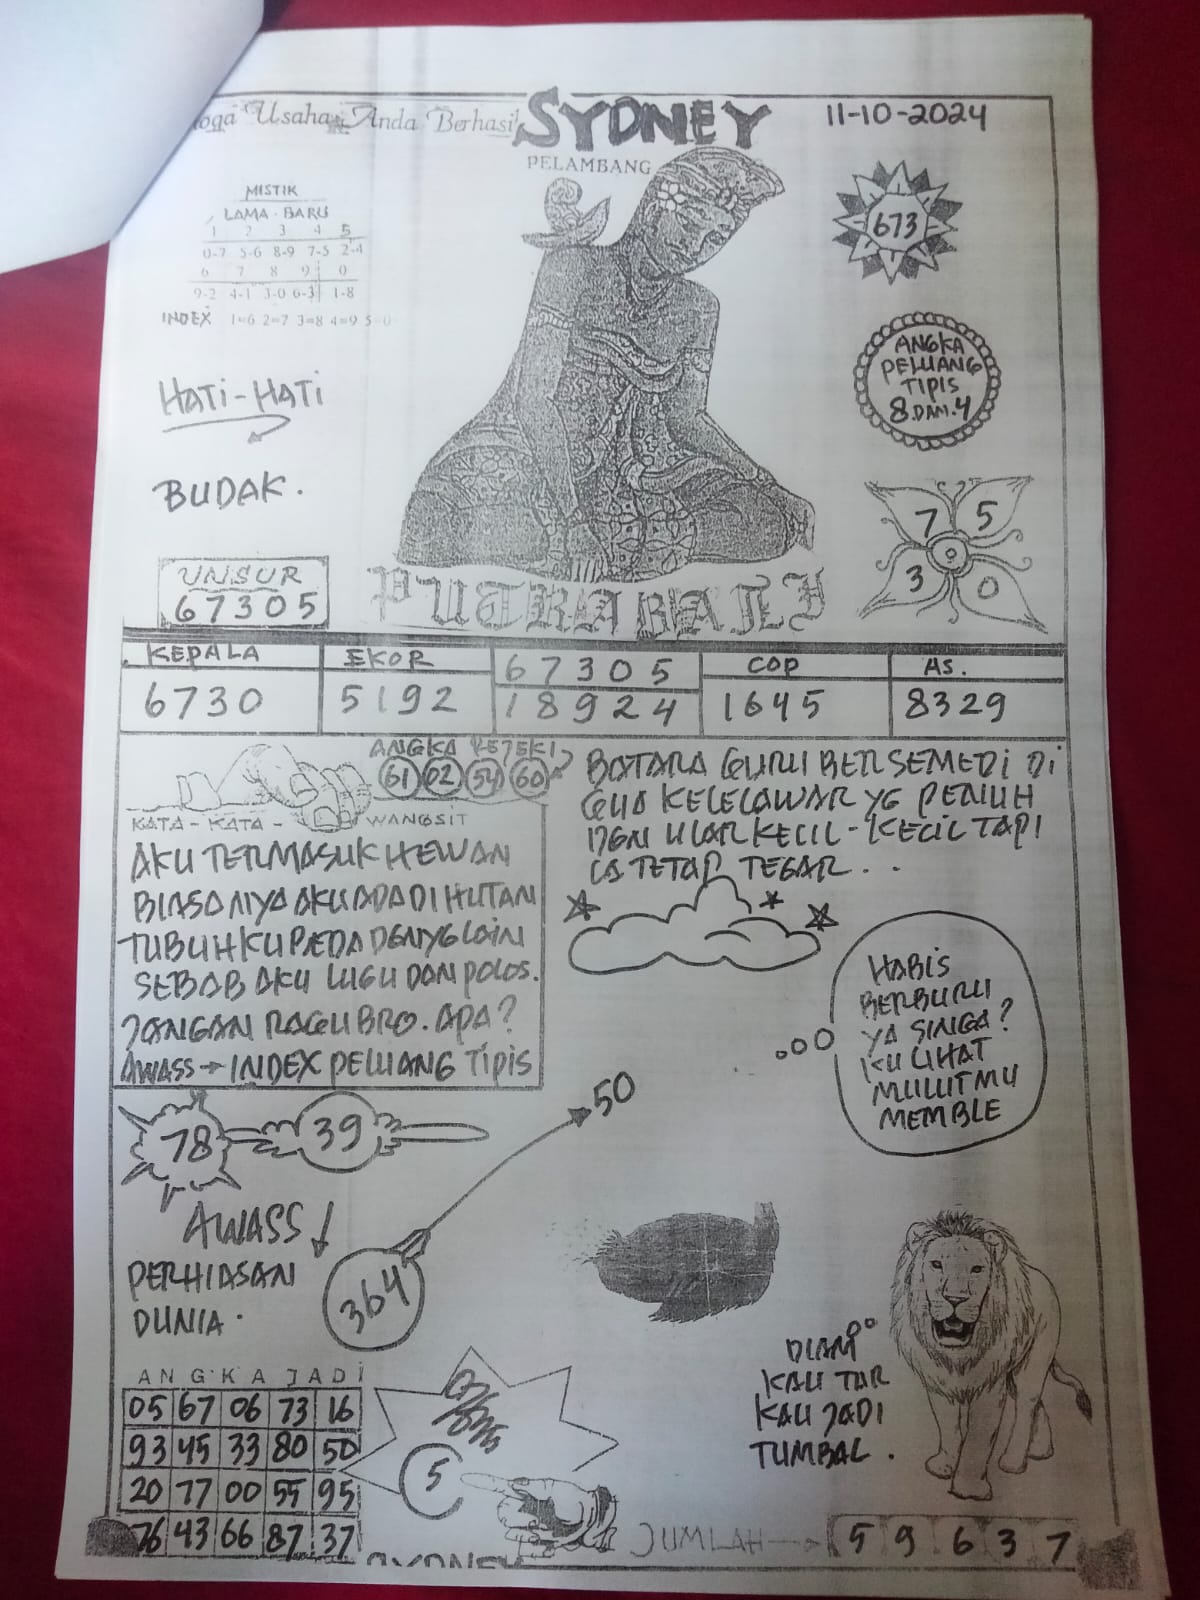 Usaha Anda Berhasil
SYDNEY
11-10-2024
PELAMBANG
MISTIK
LAMA - BARU
1 2 3 4 5
0-7 5-6 8-9 7-5 2-4
6 7 8 9 0
9-2 4-1 3-0 6-3 1-8
INDEX 1=6 2=7 3=8 4=9 5=0
673
ANGKA
PELUANG
TIPIS
8 DAN 4
HATI-HATI
BUDAK.
7 5
3 0
UNSUR
67305
PUTRA BALI
KEPALA EKOR 67305 COP AS.
6730 5192 18924 1645 8329
ANGKA REJEKI
61 02 54 60
KATA-KATA-WANGSIT
AKU TERMASUK HEWAN
BIASANYA AKU ADA DI HUTAN
TUBUHKU BEDA DENYG LAIN
SEBAB AKU LUGU DAN POLOS.
JANGAN RAGU BRO. APA?
AWASS → INDEX PELUANG TIPIS
BATARA GURU BERSEMEDI DI
GUA KELELAWAR YG PENUH
DGN ULAR KECIL-KECIL TAPI
IA TETAP TEGAR...
HABIS
BERBURU
YA SINGA?
KU LIHAT
MULUTMU
MEMBLE
78 39
50
AWASS ↓
PERHIASAN
DUNIA.
364
DIAM
KAU TAR
KAU JADI
TUMBAL.
ANGKA JADI
05 67 06 73 16
93 45 33 80 50
20 77 00 55 95
76 43 66 87 37
5
JUMLAH → 5 9 6 3 7
SYDNEY